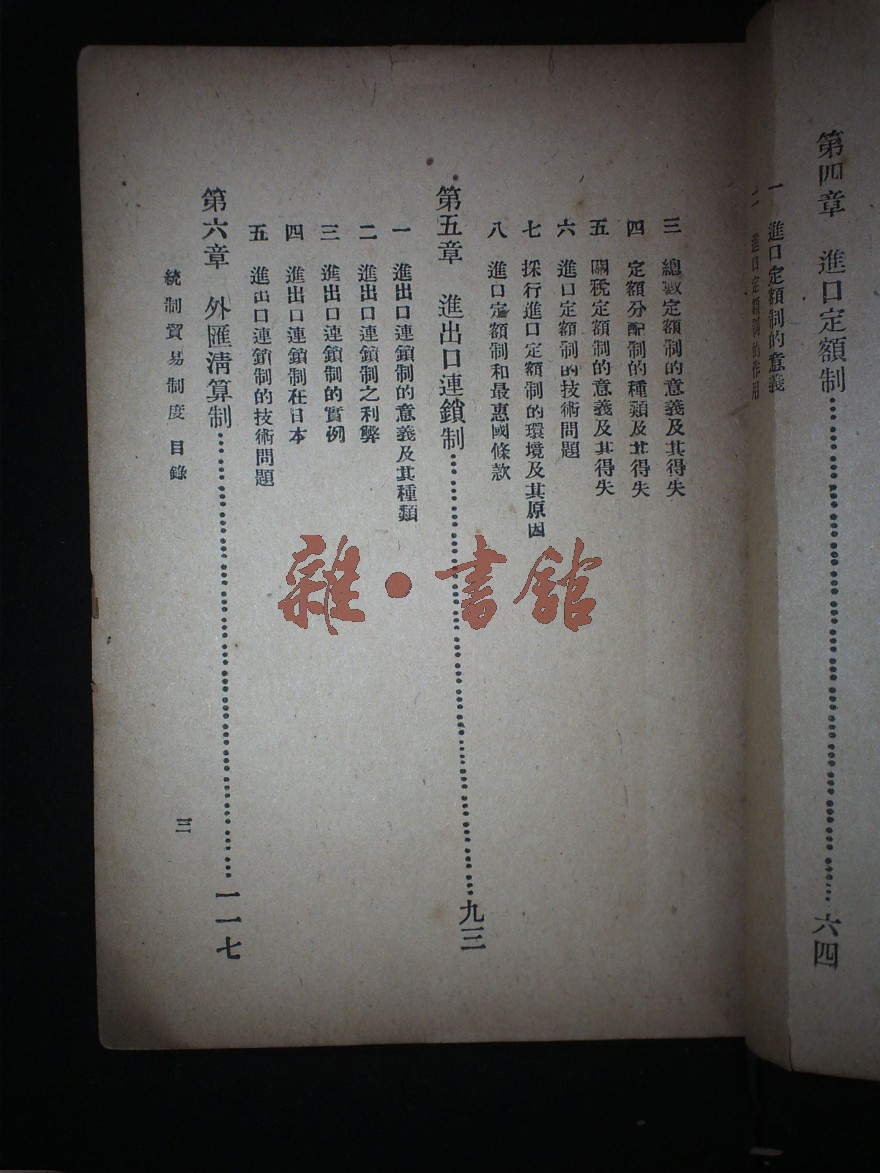 第四章　進口定額制……六四
一　進口定額制的意義
二　進口定額制的作用
三　總數定額制的意義及其得失
四　定額分配制的種類及其得失
五　關稅定額制的意義及其得失
六　進口定額制的技術問題
七　採行進口定額制的環境及其原因
八　進口定額制和最惠國條款
第五章　進出口連鎖制……九三
一　進出口連鎖制的意義及其種類
二　進出口連鎖制之利弊
三　進出口連鎖制的實例
四　進出口連鎖制在日本
五　進出口連鎖制的技術問題
第六章　外匯清算制……一一七
統制貿易制度　目錄
三
雜·書館